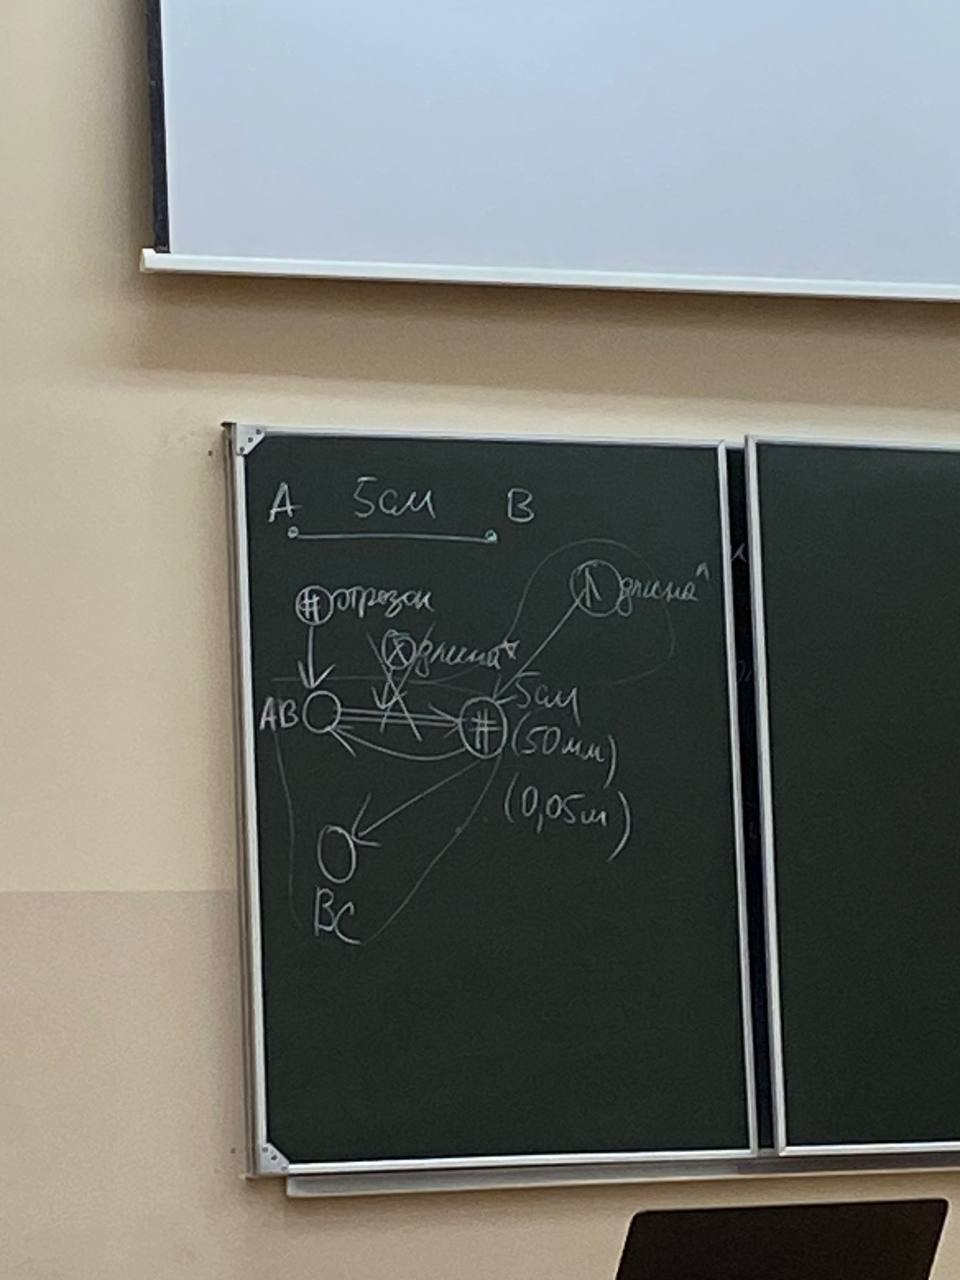 A 5см B
отрезок
длина^
длина*
AB
5см
(50мм)
(0,05м)
BC